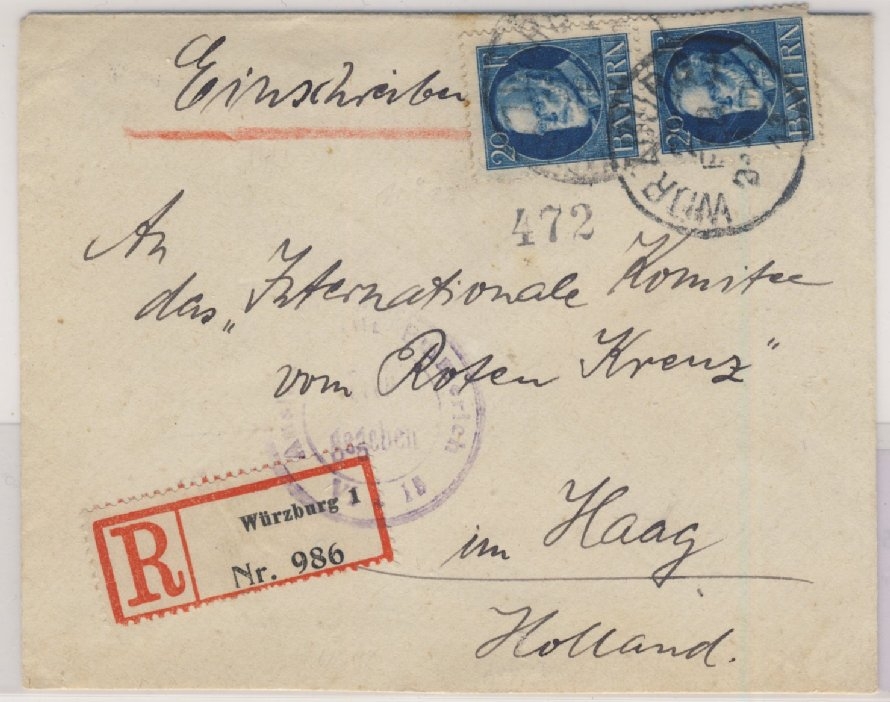 Einschreiben
20 BAYERN
20 BAYERN
WÜRZBURG
472
An
das „Internationale Komitee
vom Roten Kreuz"
gegeben
R
Würzburg 1
Nr. 986
im Haag
Holland.